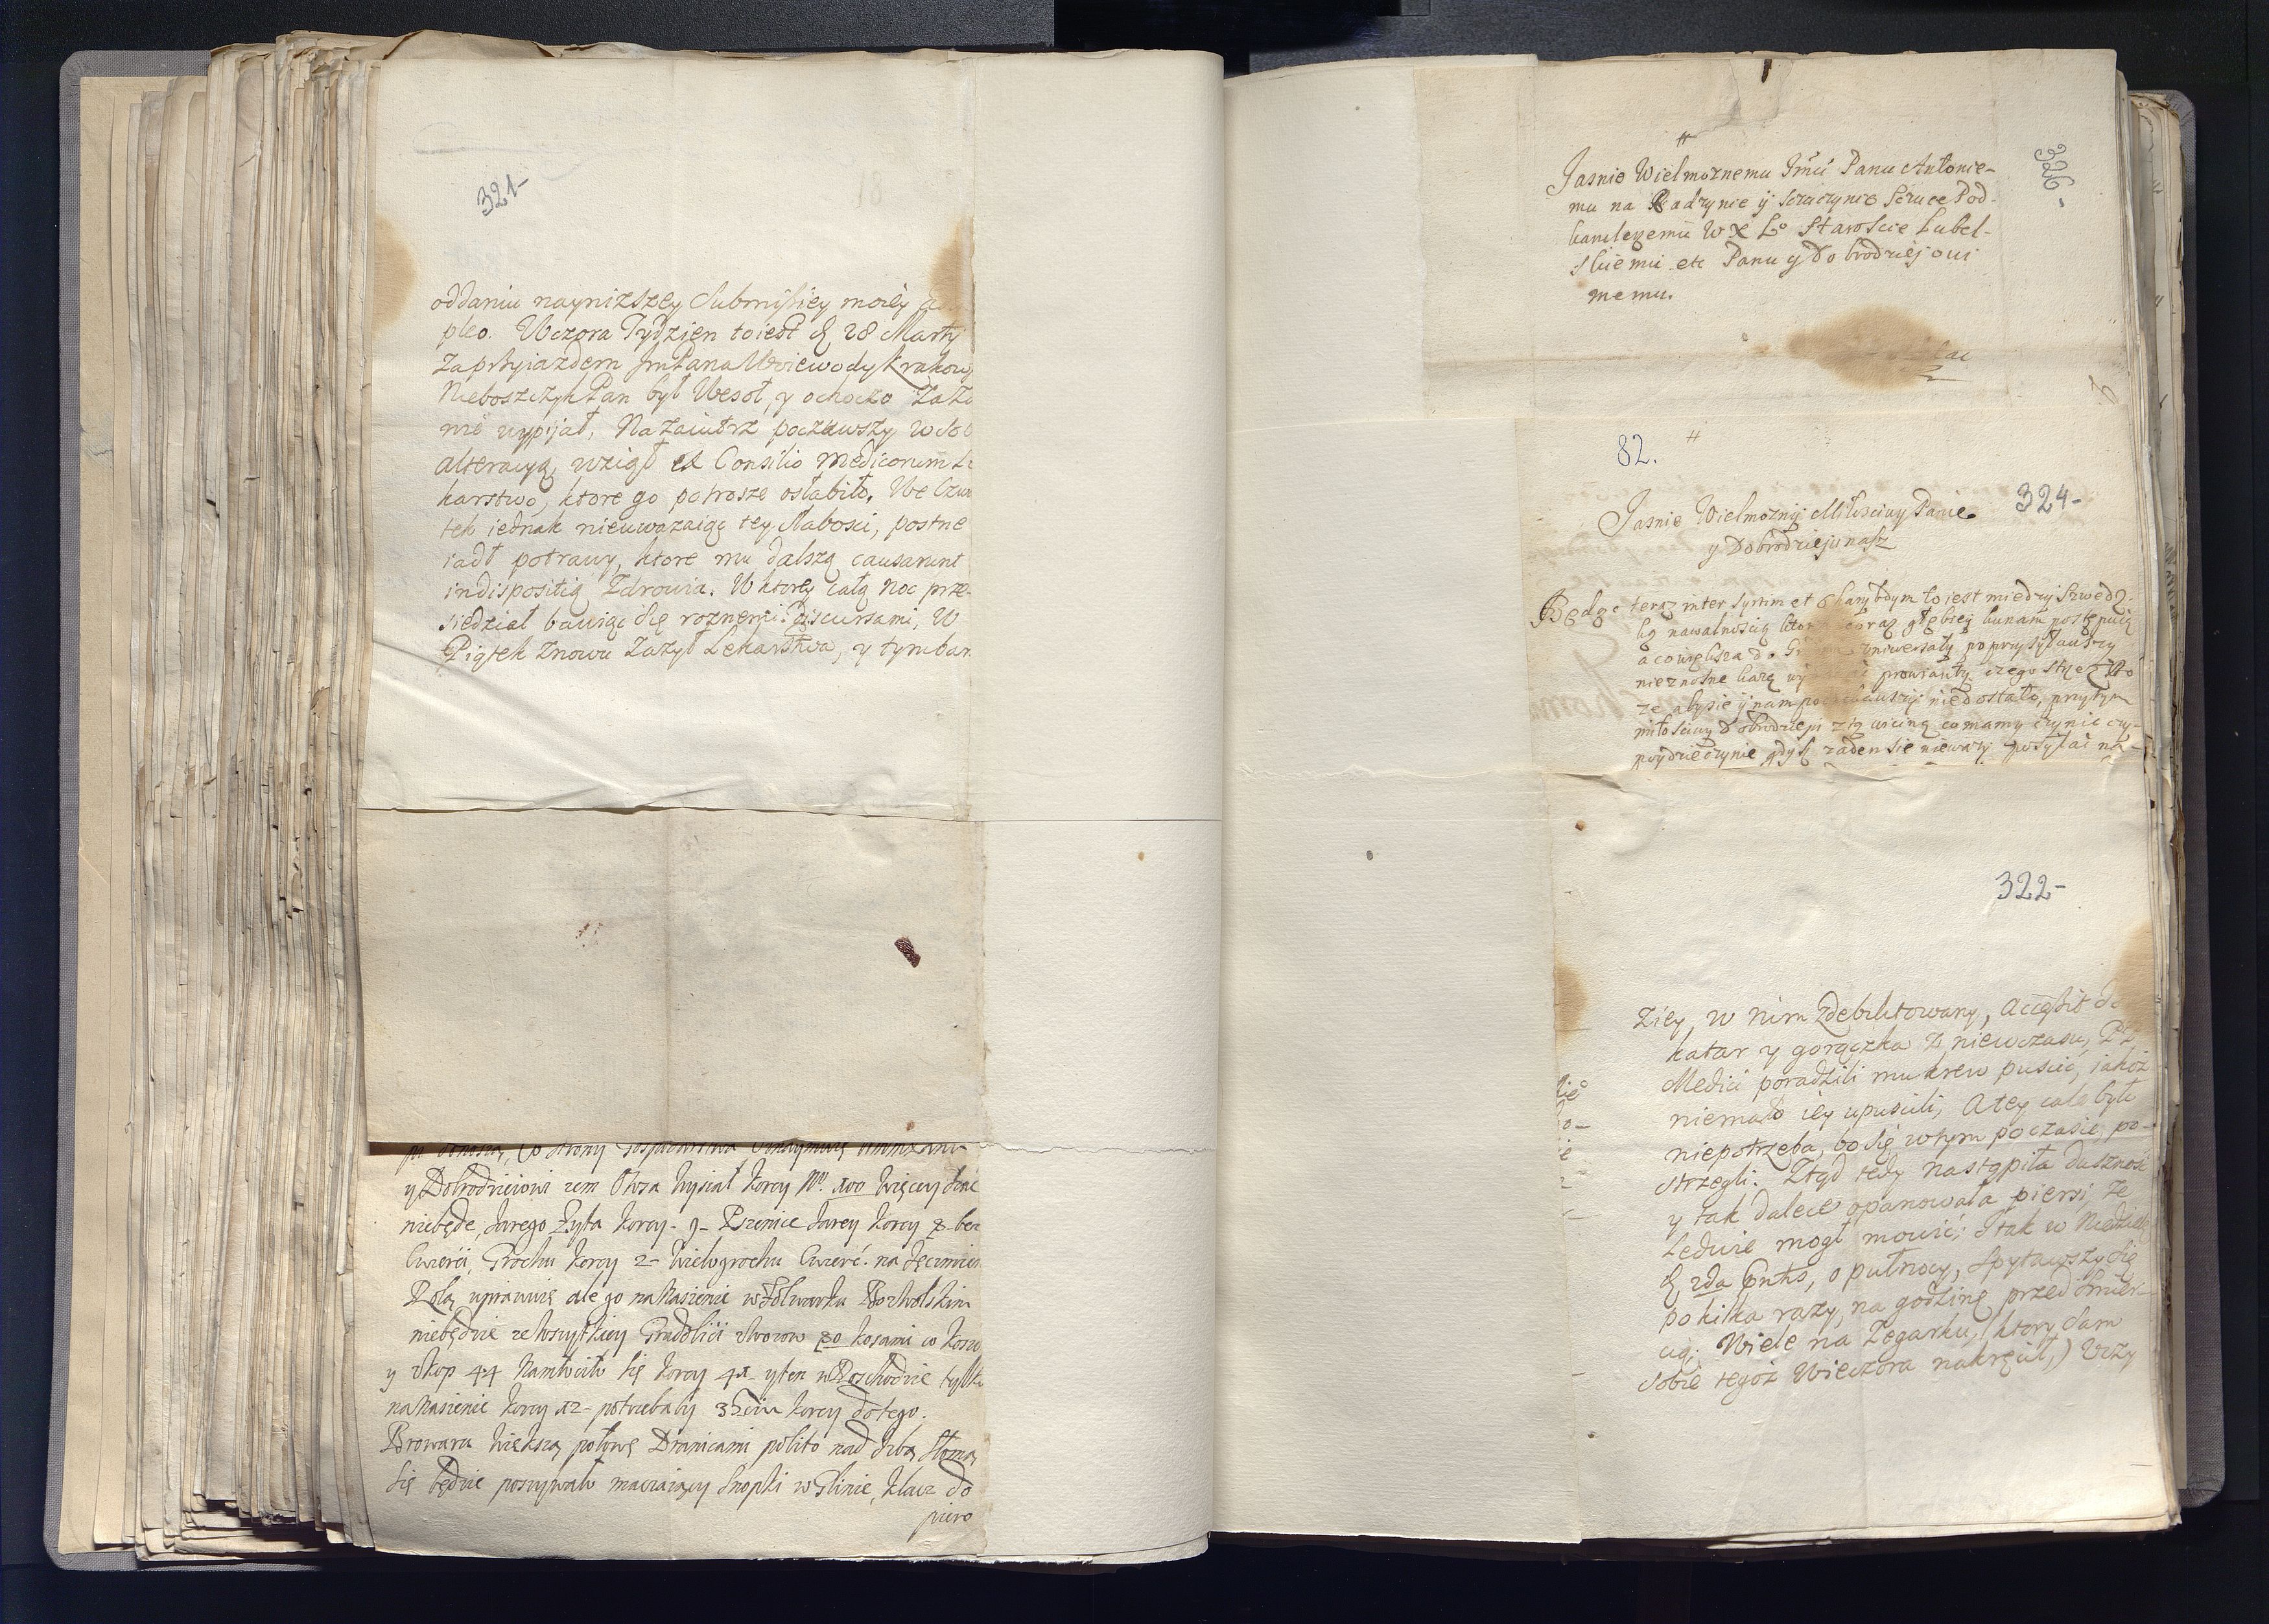 321-
oddaniu naynizszey Submissiey moiey
pleo. Wczora Tydzien toiest d. 28 Marty
za przyiazdem Jm Pana Woiewody Krakow
Nieboszczyk Pan był Wesoł, y ochoczo
nie wypijał, Nazaiutrz poczuwszy w sob
alteracyą, wziął ex Consilio Medicorum Le
karstwo, ktore go potrosze osłabiło. We Czwar
tek iednak nieuwazaiąc tey słabosci, postne
iadł potrawy, ktore mu dalszą causarunt
indispositią Zdrowia. W ktorey całą noc prze-
siedział bawiąc się roznemi Discursami, W
Piątek znowu zazył Lekarstwa, y tymbar
y Dobrodzieiowi iem Owsa wysiał korcy No. 100 więcey siać
niebęde, Jarego Zyta korcy - 9 - Pszenice Jarey korcy 8 - bez
Cwierci, Grochu korcy 2 - Wielogrochu Cwierć. na Jęczmien
Rolą uprawuię ale go na Nasienie w Folwarku
niebędzie ze wszytkiey 80 kosami co
y Kop 44 Namłociło się korcy 41 - y ten w Rozchodzie tylko
na Nasienie korcy 12 - potrzebaby 35ciu korcy do tego.
Browaru większą połowę Dranicami pobito nad Izbą Słomą
się będzie poszywało maczaiący Snopki w Glinie,
piero
326-
Jasnie Wielmoznemu Jmci Panu Antonie-
mu na Radzynie y Szczuczynie Szczuce Pod-
kanclerzemu W X Lo Staroscie Lubel-
skiemu etc Panu y Dobrodziejowi
memu.
82.
324-
Jasnie Wielmozny Miłosciwy Panie
y Dobrodzieju nasz
Będąc teraz inter Syrtim et Charybdym to iest miedzy Szwedz-
ką nawalnoscią coraz głębiey ku nam postępuią
a co większa uniwersały poprzysyłauszy
nieznosne każą prowianty czego
ze a nam niedostało, przytym
miłosciwy Dobrodzieju z tą wicing co mamy czynic czy
poydzie czy nie gdysz zaden sie niewazy posyłac na
322-
ziey, w nim Zdebilitowany,
katar y gorączka z niewczasu,
Medici poradzili mu krew puscić, iakoz
niemało iey upuscili, A tey cale było
niepotrzeba, bo się w tym po czasie po-
strzegli. Ztąd tedy nastąpiła dusznosć
y tak dalece opanowała piersi, ze
Ledwie mogł mowić; I tak w Niedziele
d. 2da , o pułnocy, spytawszy się
po kilka razy, na godzinę przed Smier-
cią; Wiele na Zegarku, (ktory sam
sobie tegoz Wieczora nakręcił,)